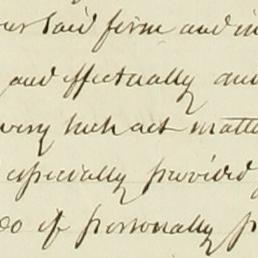 our said firm and in
and effectually and
every such act matte
especially provided
do if personally p